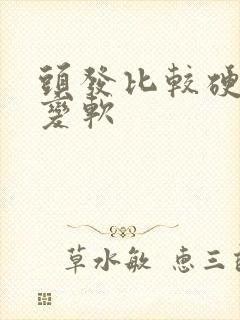 頭發比較硬
變軟
草水敏 惠三